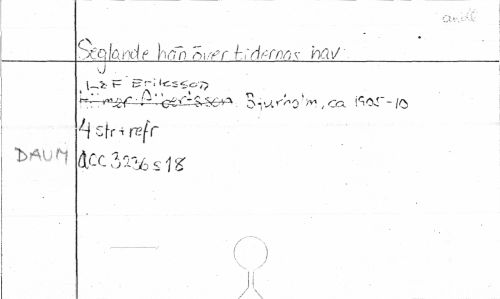 andl
Seglande hän över tidernas hav
L & F Eriksson
Bjurholm, ca 1905-10
4 str + refr
DAUM acc 3236 s 18